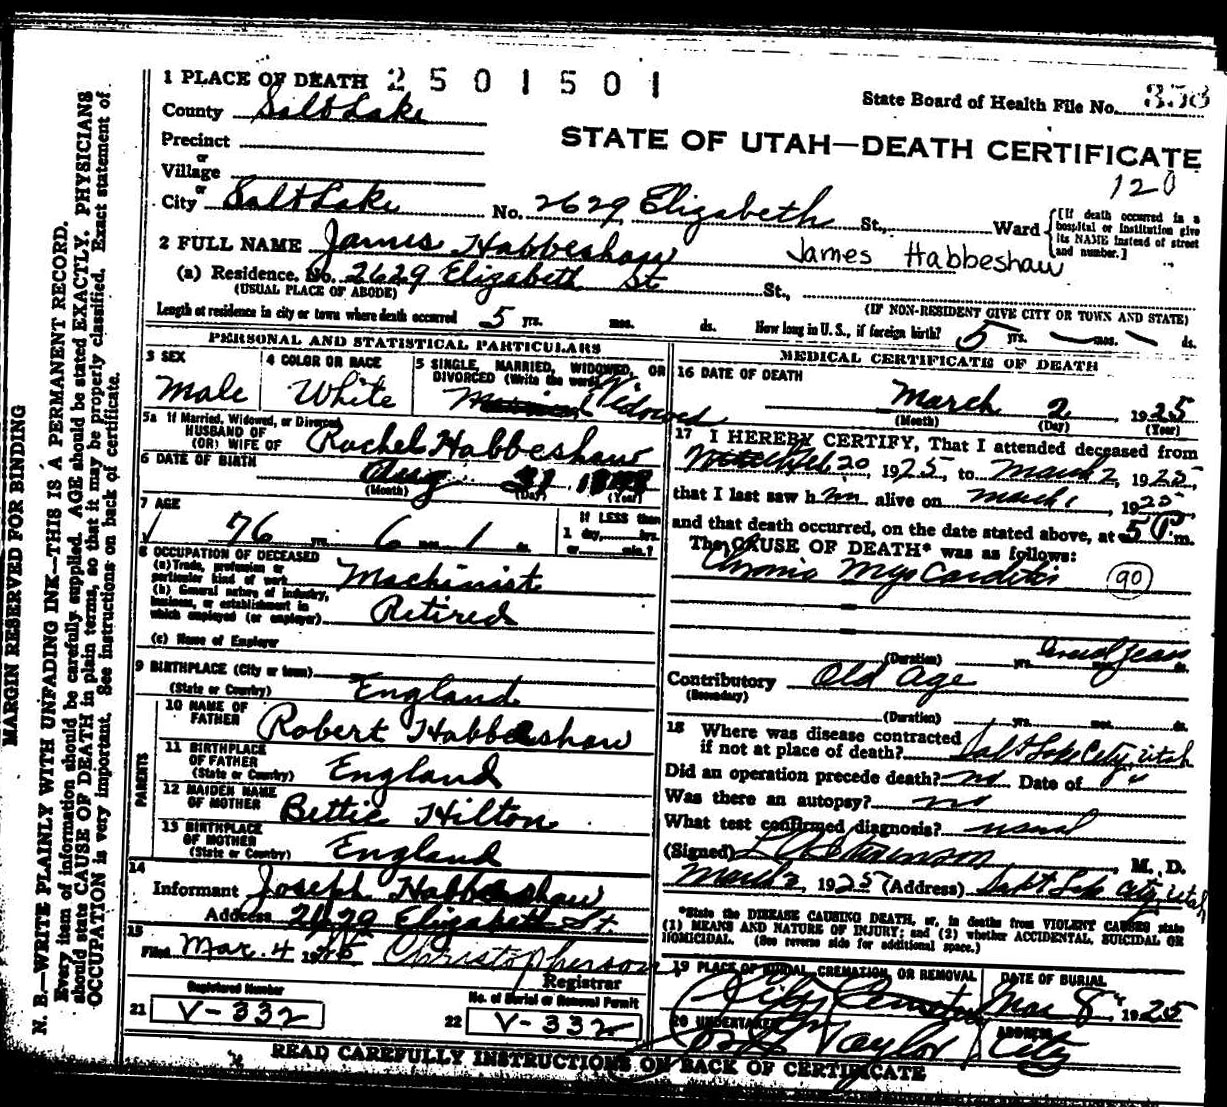 MARGIN RESERVED FOR BINDING
N. B.—WRITE PLAINLY WITH UNFADING INK—THIS IS A PERMANENT RECORD.
Every item of information should be carefully supplied. AGE should be stated EXACTLY. PHYSICIANS
should state CAUSE OF DEATH in plain terms, so that it may be properly classified. Exact statement of
OCCUPATION is very important. See instructions on back of certificate.
1 PLACE OF DEATH 2501501
State Board of Health File No. 358
County Salt Lake
STATE OF UTAH—DEATH CERTIFICATE
Precinct
or
Village
120
or
City Salt Lake No. 2629 Elizabeth St., Ward
[If death occurred in a hospital or institution give its NAME instead of street and number.]
2 FULL NAME James Habbeshaw James Habbeshaw
(a) Residence, No. 2629 Elizabeth St St.,
(USUAL PLACE OF ABODE) (IF NON-RESIDENT GIVE CITY OR TOWN AND STATE)
Length of residence in city or town where death occurred 5 yrs. mos. ds. How long in U. S., if foreign birth? 5 yrs. mos. ds.
PERSONAL AND STATISTICAL PARTICULARS
3 SEX Male
4 COLOR OR RACE White
5 SINGLE, MARRIED, WIDOWED, OR DIVORCED (Write the word) Widowed
5a If Married, Widowed, or Divorced
HUSBAND OF
(OR) WIFE OF Rachel Habbeshaw
6 DATE OF BIRTH Aug 31
(Month) (Day) (Year)
7 AGE 76 yrs. 6 mos. 1 ds.
If LESS than
1 day, hrs.
or min.?
8 OCCUPATION OF DECEASED
(a) Trade, profession or
particular kind of work Machinist
(b) General nature of industry,
business, or establishment in
which employed (or employer) Retired
(c) Name of Employer
9 BIRTHPLACE (City or town)
(State or Country) England
PARENTS
10 NAME OF FATHER Robert Habbeshaw
11 BIRTHPLACE OF FATHER
(State or Country) England
12 MAIDEN NAME OF MOTHER Bettie Hilton
13 BIRTHPLACE OF MOTHER
(State or Country) England
14
Informant Joseph Habbeshaw
Address 2629 Elizabeth St.
15
Filed Mar. 4 1925 Christopherson
Registrar
Registered Number
21 V-332
No. of Burial or Removal Permit
22 V-332
MEDICAL CERTIFICATE OF DEATH
16 DATE OF DEATH
March 2 1925
(Month) (Day) (Year)
17 I HEREBY CERTIFY, That I attended deceased from
Feb 20, 1925, to March 2, 1925,
that I last saw him alive on March 1, 1925
and that death occurred, on the date stated above, at 5 P.m.
The CAUSE OF DEATH* was as follows:
Chronic Myocarditis 90
(Duration) yrs. mos. ds. Several years
Contributory Old Age
(Secondary)
(Duration) yrs. mos. ds.
18 Where was disease contracted
if not at place of death? Salt Lake City, Utah
Did an operation precede death? no Date of "
Was there an autopsy? no
What test confirmed diagnosis? usual
(Signed) Stevenson, M. D.
March 2, 1925 (Address) Salt Lake City, Utah
*State the DISEASE CAUSING DEATH, or, in deaths from VIOLENT CAUSES state
(1) MEANS AND NATURE OF INJURY; and (2) whether ACCIDENTAL, SUICIDAL OR
HOMICIDAL. (See reverse side for additional space.)
19 PLACE OF BURIAL, CREMATION, OR REMOVAL
City Cemetery
DATE OF BURIAL
Mar 8" 1925
20 UNDERTAKER
Taylor
ADDRESS
City
READ CAREFULLY INSTRUCTIONS ON BACK OF CERTIFICATE